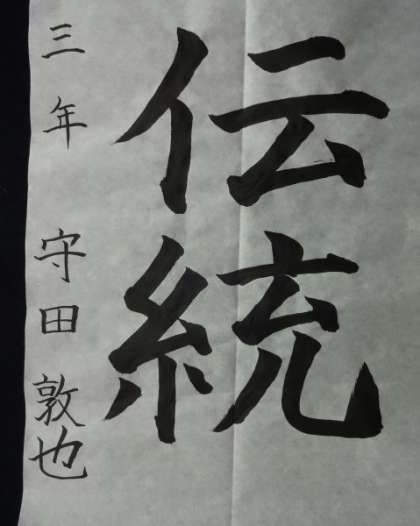 伝統
三年 守田敦也